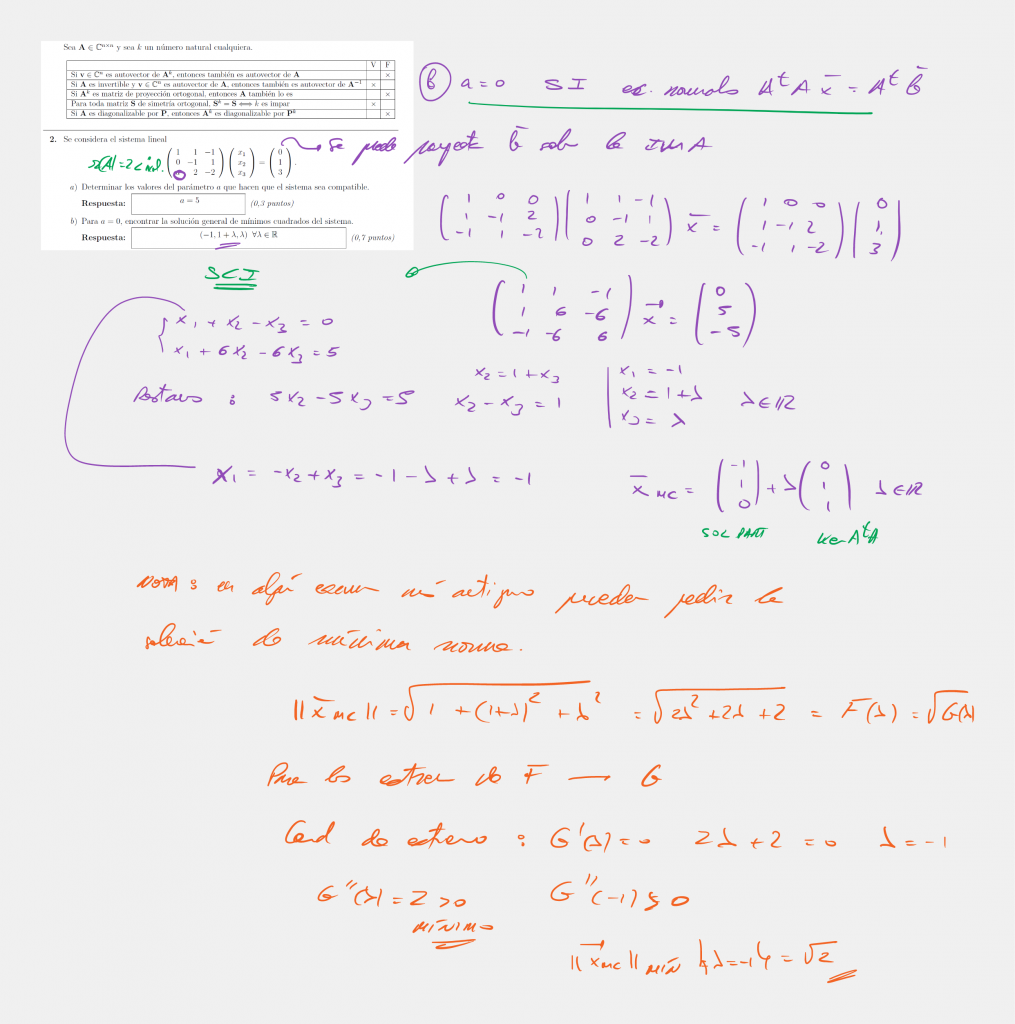 Sea A ∈ ℂⁿˣⁿ y sea k un número natural cualquiera.
V F
Si v ∈ ℂⁿ es autovector de Aᵏ, entonces también es autovector de A ×
Si A es invertible y v ∈ ℂⁿ es autovector de A, entonces también es autovector de A⁻¹ ×
Si Aᵏ es matriz de proyección ortogonal, entonces A también lo es ×
Para toda matriz S de simetría ortogonal, Sᵏ = S ⟺ k es impar ×
Si A es diagonalizable por P, entonces Aᵏ es diagonalizable por Pᵏ ×
b) a=0 SI ec. normales AᵗA x̄ = Aᵗ b̄
2. Se considera el sistema lineal
( 1 1 -1 ; 0 -1 1 ; 0 2 -2 ) ( x₁ ; x₂ ; x₃ ) = ( 0 ; 1 ; 3 ).
Se puede proyectar b̄ sobre la IMA
a) Determinar los valores del parámetro a que hacen que el sistema sea compatible.
Respuesta: a = 5 (0,3 puntos)
b) Para a = 0, encontrar la solución general de mínimos cuadrados del sistema.
Respuesta: (−1, 1 + λ, λ) ∀λ ∈ ℝ (0,7 puntos)
( 1 0 0 ; 1 -1 2 ; -1 1 -2 ) ( 1 1 -1 ; 0 -1 1 ; 0 2 -2 ) x̄ = ( 1 0 0 ; 1 -1 2 ; -1 1 -2 ) ( 0 ; 1 ; 3 )
SCI
( 1 1 -1 ; 1 6 -6 ; -1 -6 6 ) x⃗ = ( 0 ; 5 ; -5 )
x₁ + x₂ - x₃ = 0
x₁ + 6x₂ - 6x₃ = 5
Restamos : 5x₂ - 5x₃ = 5
x₂ = 1 + x₃
x₂ - x₃ = 1
x₁ = -1
x₂ = 1+λ
x₃ = λ
λ∈ℝ
x₁ = -x₂ + x₃ = -1 - λ + λ = -1
x̄ MC = ( -1 ; 1 ; 0 ) + λ ( 0 ; 1 ; 1 ) λ∈ℝ
SOL PART Ker AᵗA
NOTA : en algún examen más antiguo pueden pedir la
solución de mínima norma.
||x̄ MC|| = √(1 + (1+λ)² + λ²) = √(2λ² + 2λ + 2) = F(λ) = √G(λ)
Para los extrem de F — G
Cond de extremo : G'(λ) = 0 2λ + 2 = 0 λ = -1
G''(λ) = 2 > 0 G''(-1) > 0
MÍNIMO
||x⃗ MC|| MÍN {λ=-1} = √2